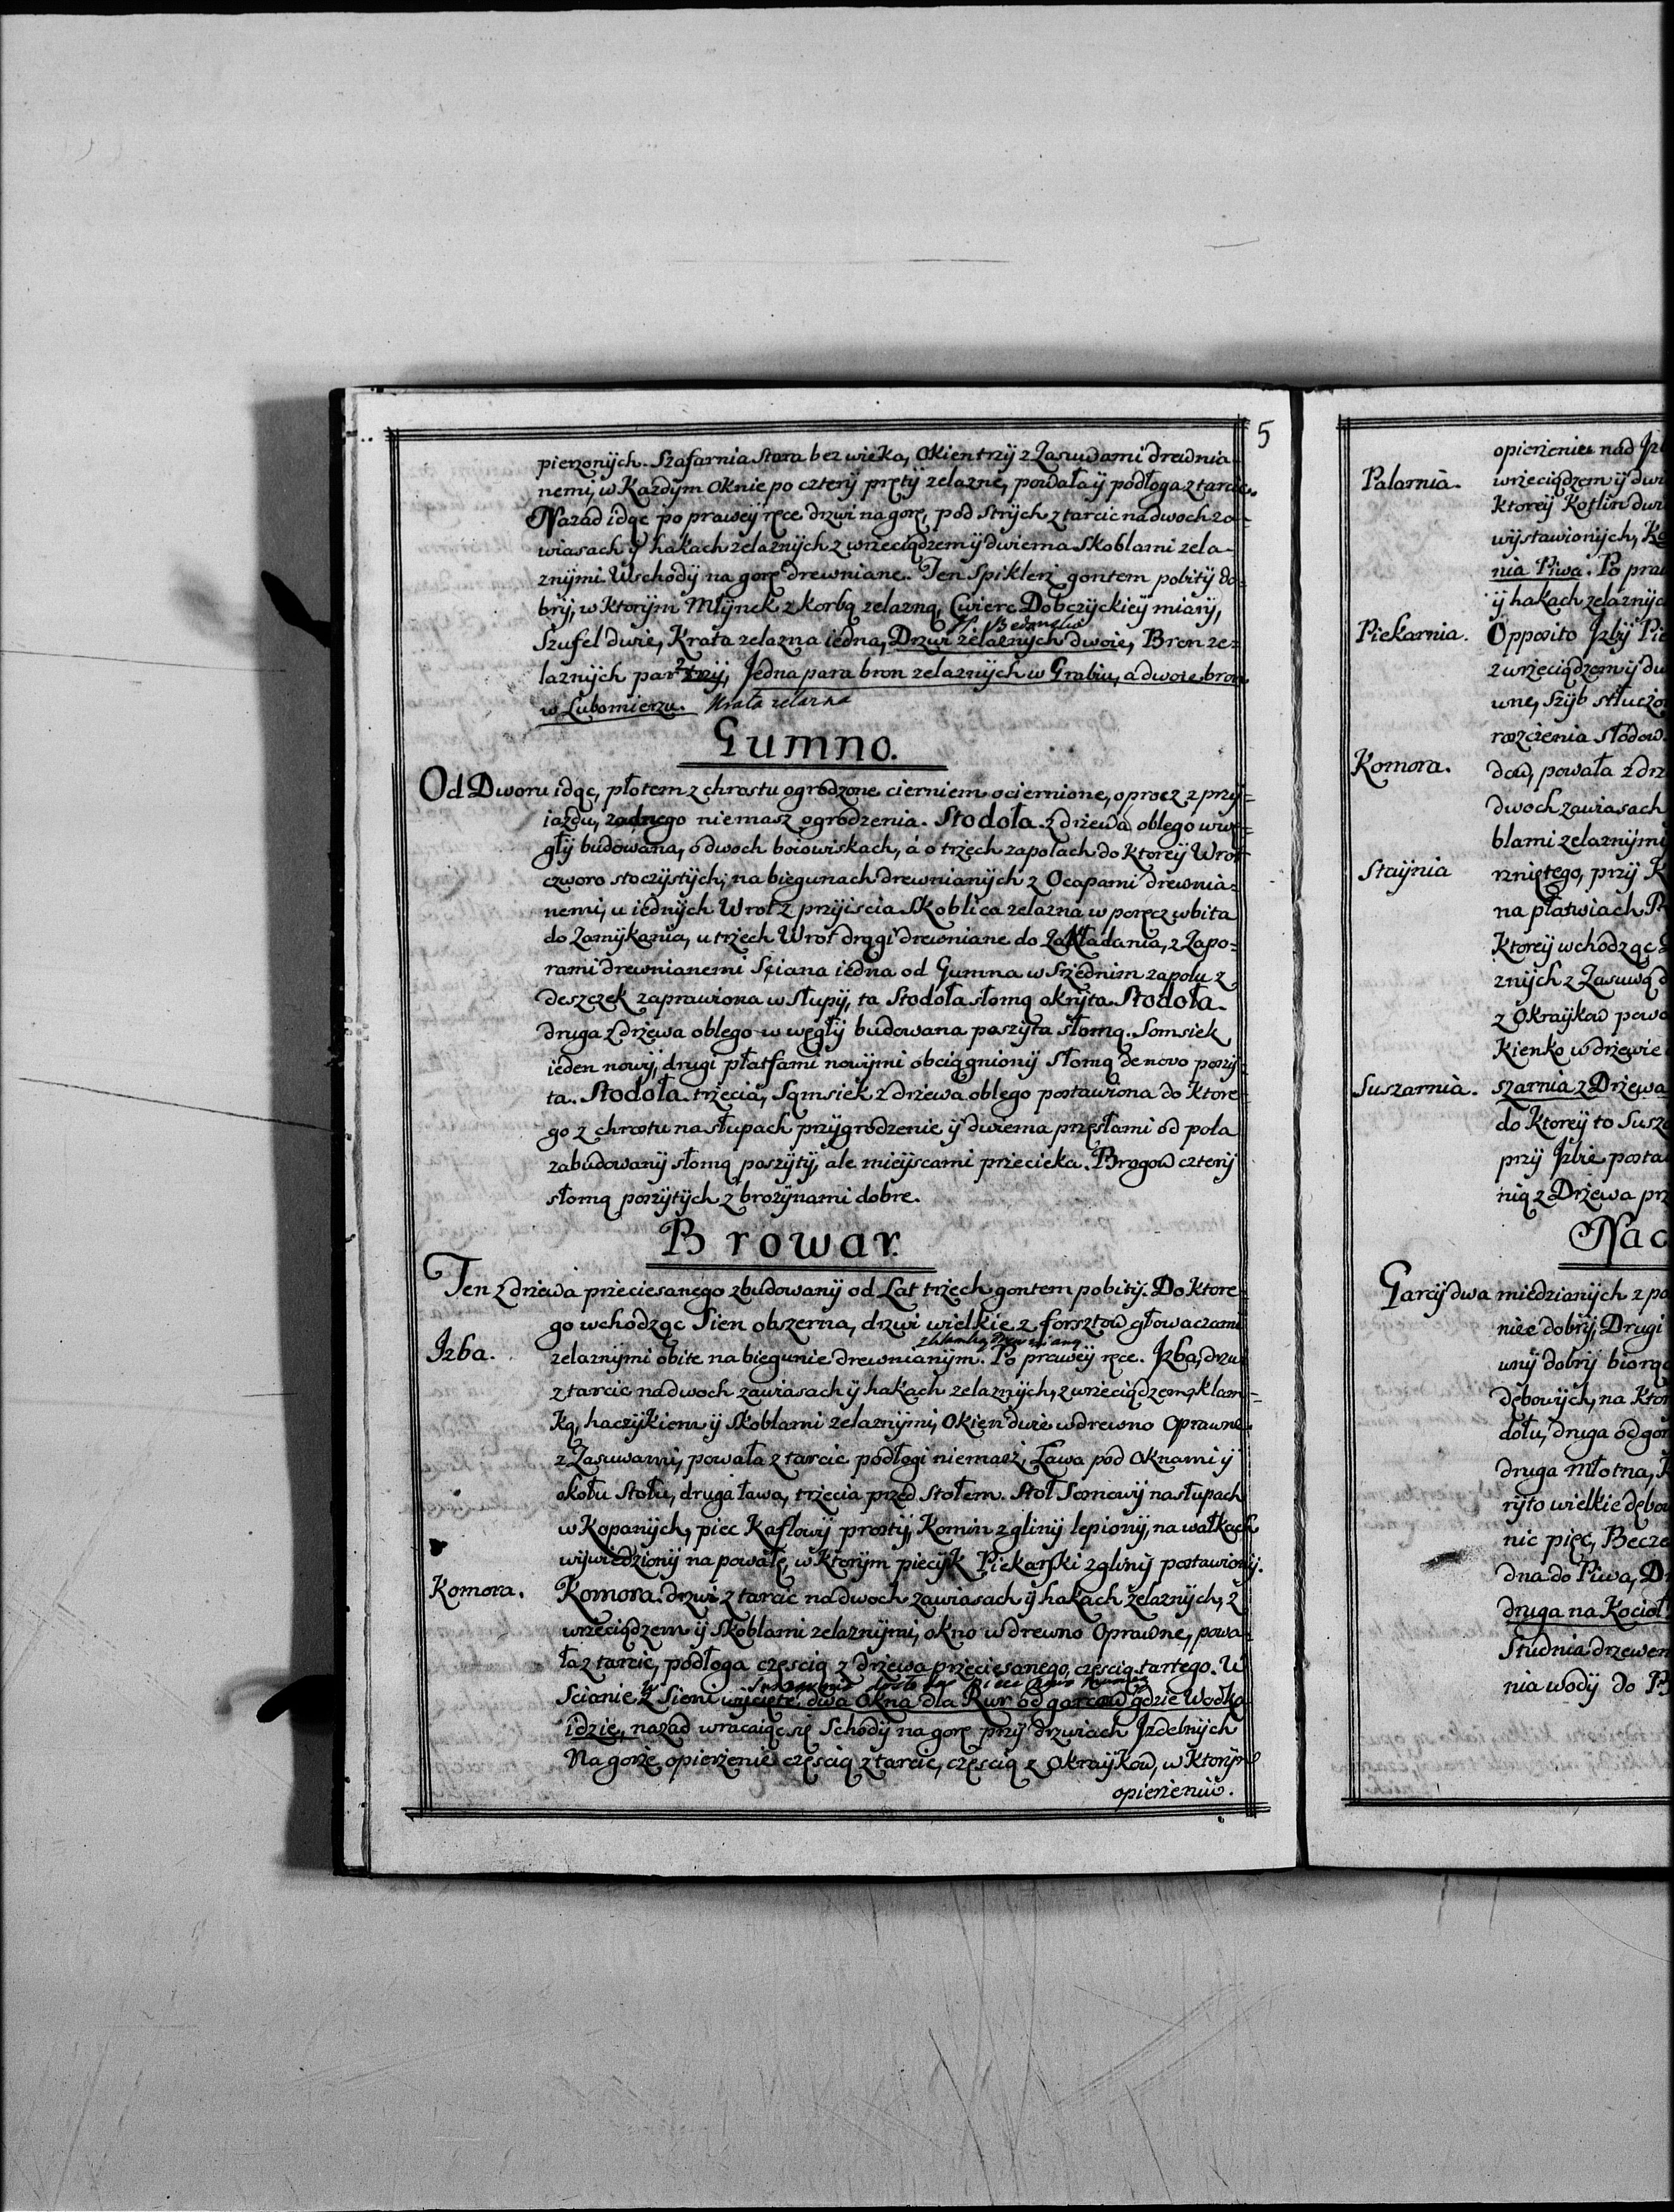 5
pierzonych. Szafarnia stara bez wieka, okien trzÿ z Zasuwami drewnia-
nemi, w Każdym oknie po czterÿ prętÿ zelazne, powała ÿ podłoga z tarcic.
Nazad idąc po prawey ręce drzwi na gorę, pod Strÿch z tarcic na dwoch za-
wiasach ÿ hakach zelaznÿch z wrzeciądzem ÿ dwiema Skoblami zela-
znÿmi Wschodÿ na gorę drewniane. Ten Spiklerz gontem pobitÿ do-
brÿ, w ktorÿm Młÿnek z korbą zelazną, Cwierc Dobczÿckieÿ miarÿ,
Szufel dwie, Krata zelazna iedna, Drzwi zelaznych dwoie, Bron ze-
laznÿch par 2 trzÿ, Jedna para bron zelaznÿch w Grabiu, a dwoie bron
w Lubomierzu. Krata zelazna
Gumno.
Od Dworu idąc, płotem z chrostu ogrodzone cierniem ociernione, oprocz z przÿ-
iazdu, zadnego niemasz ogrodzenia. Stodoła z drzewa oblego w wę-
głÿ budowana, o dwoch boiowiskach, á o trzech zapolach do ktoreÿ Wrot
czworo stoczÿstÿch, na biegunach drewnianÿch z Ocapami drewnia-
nemi, u iednÿch Wrot z przÿiscia Skoblica zelazna w poręcz wbita
do Zamÿkania, u trzech Wrot drągi drewniane do Zakładania, z Zapo-
rami drewnianemi Sciana iedna od Gumna w Srzednim zapolu z
deszczek zaprawiona w Słupÿ, ta Stodoła słomą okrÿta. Stodoła
druga z drzewa oblego w węgłÿ budowana poszÿta słomą. Somsiek
ieden nowÿ, drugi płatfami nowÿmi obciągnionÿ Słomą de novo poszÿ-
ta. Stodoła trzecia, Sąmsiek z drzewa oblego postawiona do ktore-
go z chrostu na słupach przÿgrodzenie ÿ dwiema przęsłami od pola
zabudowanÿ słomą poszÿtÿ, ale mieÿscami przecieka. Brogow czterÿ
słomą poszÿtÿch z brozÿnami dobre.
Browar.
Ten z drzewa przeciesanego zbudowanÿ od Lat trzech gontem pobitÿ. Do ktore-
go wchodząc Sien obszerna, drzwi wielkie z forsztow głowaczami
Izba. zelaznÿmi obite na biegunie drewnianÿm. Po praweÿ ręce. Jzba, drzwi
z tarcic na dwoch zawiasach ÿ hakach zelaznÿch, z wrzeciądzem, klam-
ką, haczÿkiem ÿ Skoblami zelaznÿmi, Okien dwie w drewno Oprawne
z Zasuwami, powała z tarcic podłogi niemasz, Ława pod oknami ÿ
okołu Stołu, druga ława, trzecia przed Stołem. Stoł Sosnowÿ na słupach
w Kopanÿch, piec Kaflowÿ prostÿ, Komin z glinÿ lepionÿ, na wałkach
wÿwiedzionÿ na powałę, w ktorÿm piecÿk Piekarski z glinÿ postawionÿ.
Komora. Komora. drzwi z tarcic na dwoch zawiasach ÿ hakach zelaznÿch, z
wrzeciądzem ÿ Skoblami zelaznÿmi, okno w drewno Oprawne, powa-
ła z tarcic, podłoga częscią z drzewa przeciesanego, częscią tartego. W
Scianie z Sieni wÿcięte dwa okna dla Rur od garcow gdzie Wodka
idzie, nazad wracaiąc się Schodÿ na gorę przÿ drzwiach Jzdebnÿch
Na gorze opierzenie częscią z tarcic, częscią z Okraÿkow, w ktorÿm
opierzeniu.
opierzenie nad
Palarnia. wrzeciądzem ÿ
ktoreÿ Kotlin
wÿstawionÿch,
nia Piwa. Po
ÿ hakach
Piekarnia. Opposito Jzbÿ
z wrzeciądzem ÿ
wne, Szÿb
roszczenia Słodow
Komora. dow, powała z
dwoch zawiasach
blami zelaznÿmi
Staÿnia rzniętego, przÿ
na płatwiach
ktoreÿ wchodząc
znÿch z Zasuwą
z Okraÿkow
Kienko w drzewie
Suszarnia. szarnia z Drzewa
do ktoreÿ to
przÿ Jzbie
nią z Drzewa
Garcÿ dwa miedzianÿch z
nice dobrÿ, Drugi
wnÿ dobrÿ
dębowÿch, na
dołu, druga od
druga młotna,
rÿto wielkie
nic pięć,
dna do Piwa,
druga na Kocioł
Studnia
nia wodÿ do